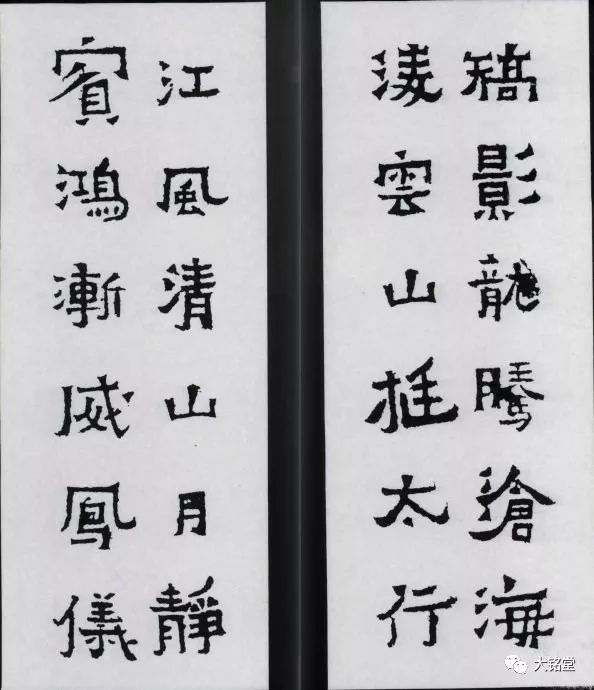 矯影龍騰滄海
淩雲山挺太行
江風清山月靜
賓鴻漸威鳳儀
大铭堂